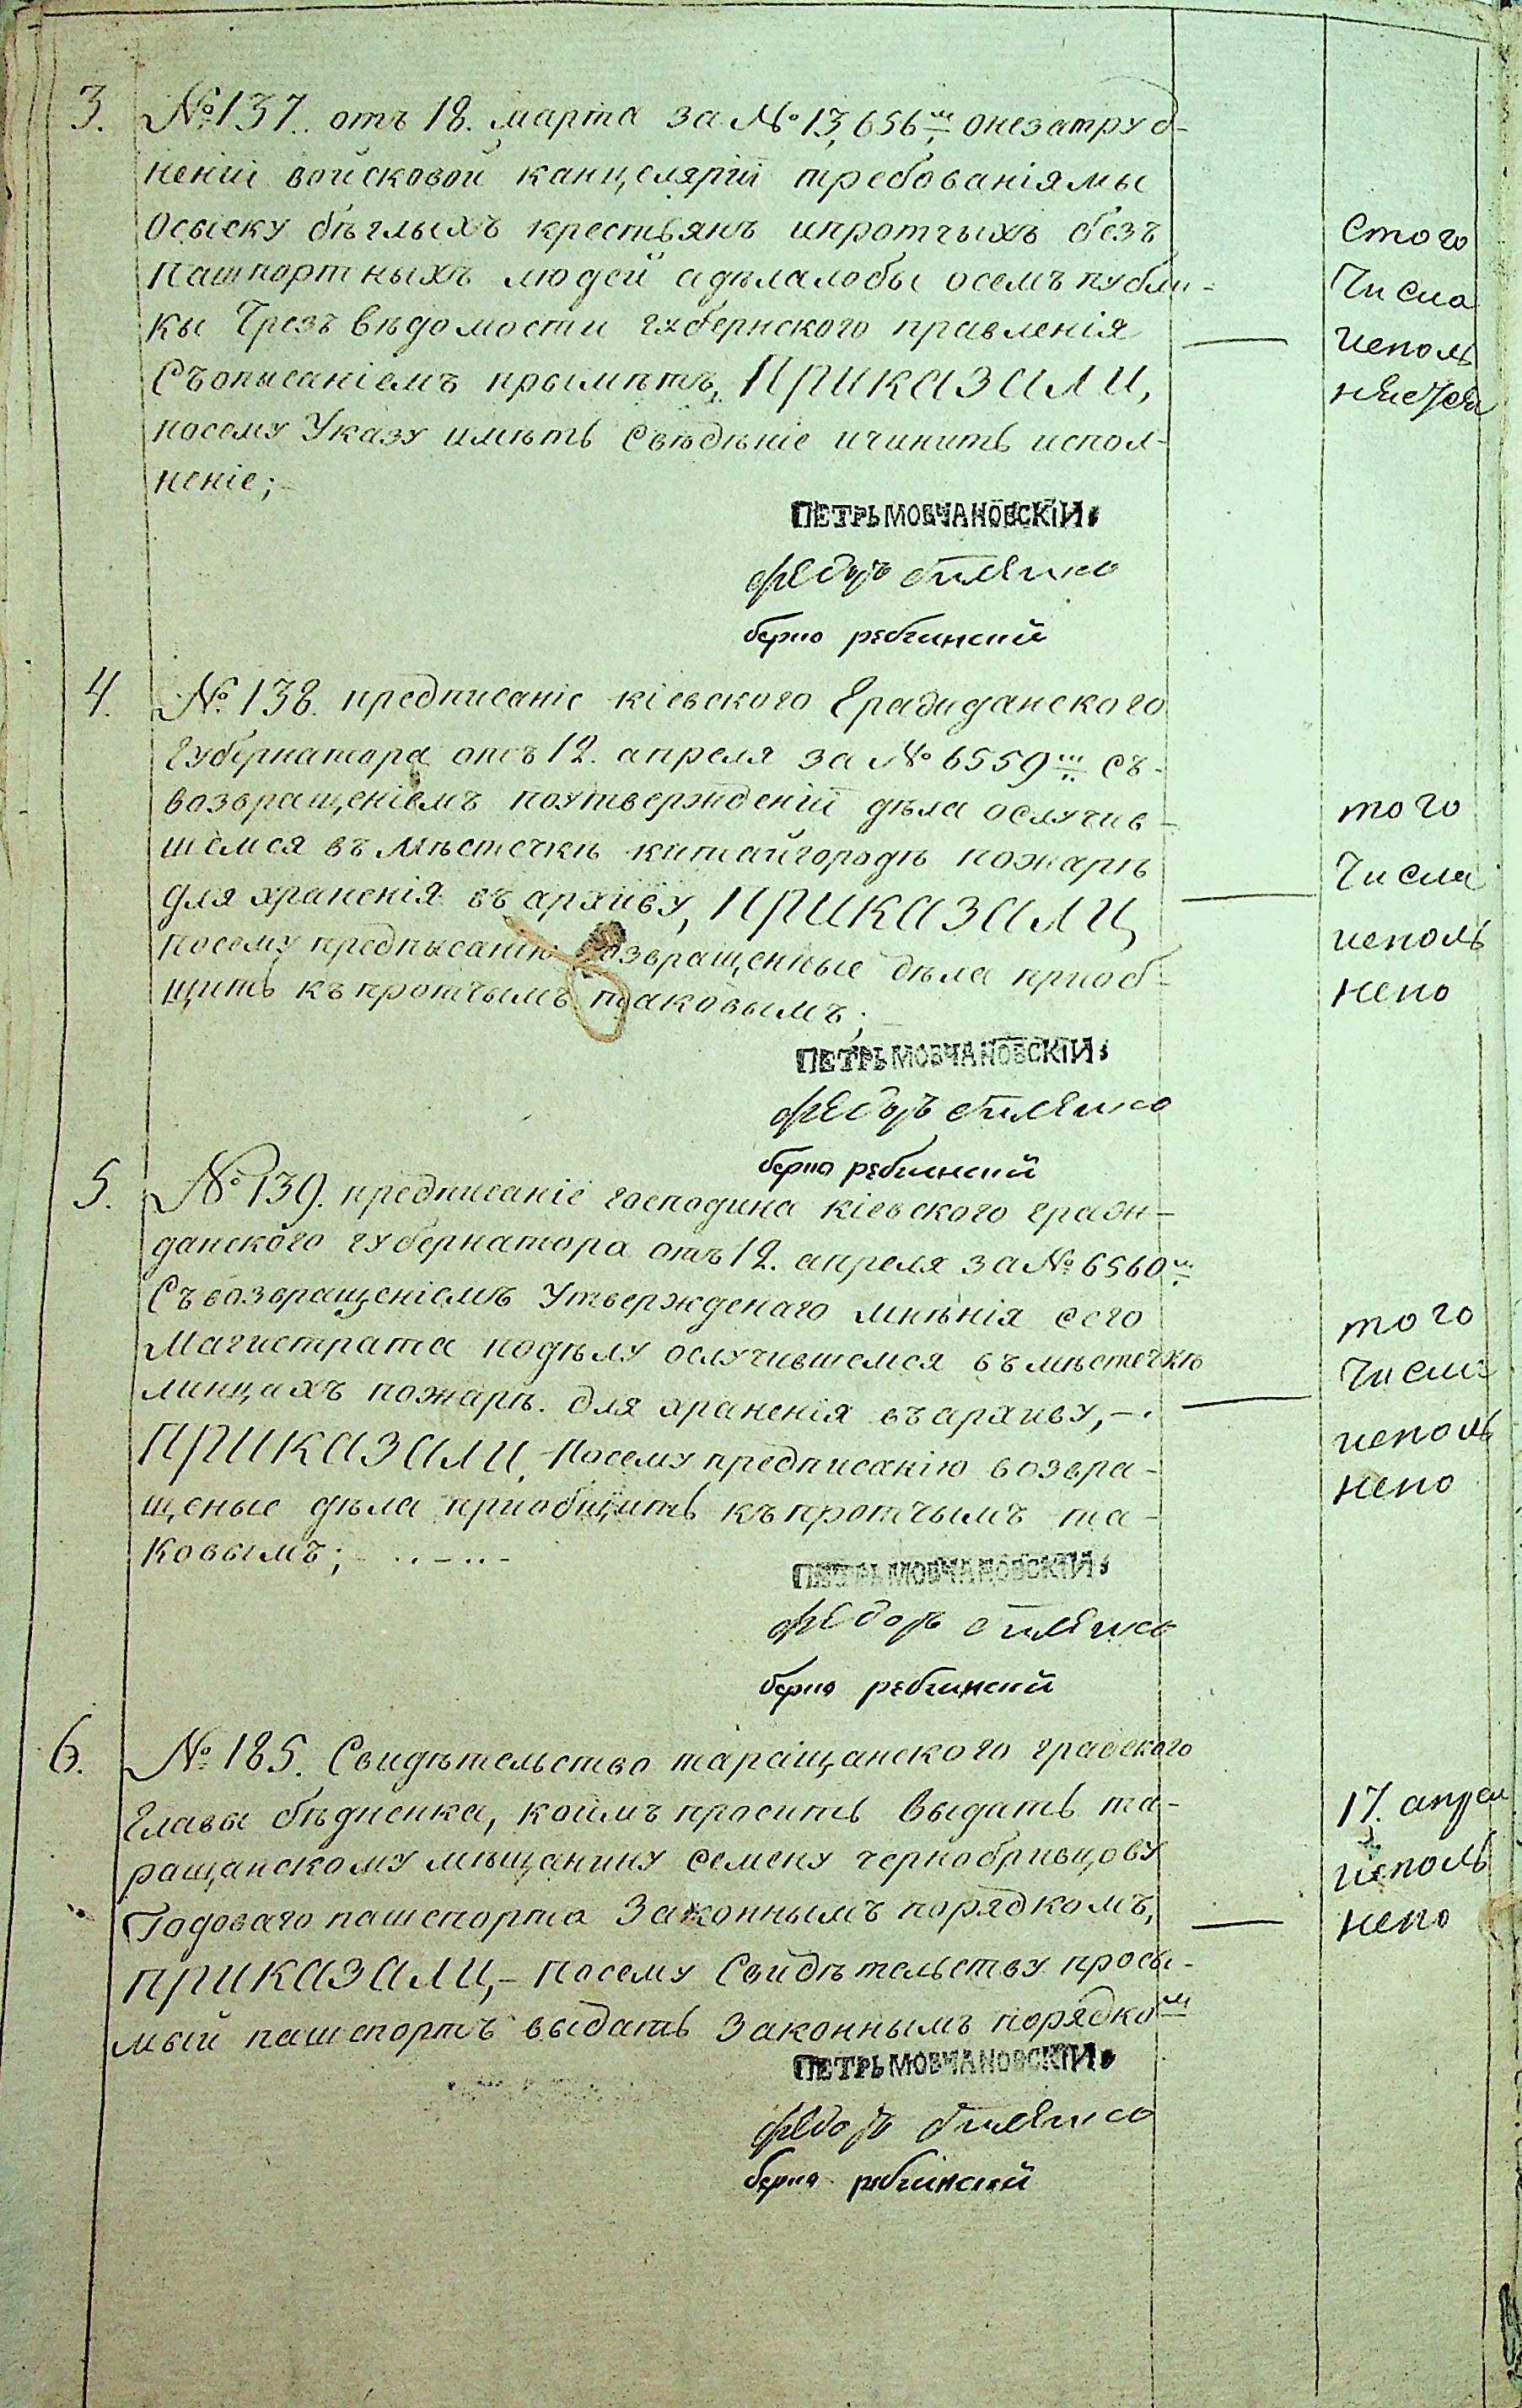 3. №137. отъ 18. марта за №13,656м онезатруд-
неніи войсковой канцеляріи требованіямы
осыску бѣглыхъ крестьянъ ипротчыхъ безъ
пашпортныхъ людей адѣлалобы осемъ публи-
кы Чрезъ вѣдомости губернского правленія
Съописаніемъ прымѣтъ, Приказали,
посему Указу имѣть Свѣдѣніе ичинить испол-
неніе;
Стого
Числа
исполь
няется
ПЕТРЬ МОВЧАНОВСКІЙ
федоръ
берко
4. №138. предписаніе кіевского Гражданского
Губернатора отъ 12. апреля за №6559м съ-
возвращеніемъ поутвержденіи дѣла ослучив-
шемся въ мѣстечкѣ китайгородѣ пожарѣ
для храненія въ архиву, Приказали
посему предписанію возвращенные дѣла приоб-
щить къпротчымъ таковымъ;
того
Числа
исполь
нено
ПЕТРЬ МОВЧАНОВСКІЙ
федоръ
берко
5. №139. предписаніе господина кіевского граж-
данского губернатора отъ 12. апреля за №6560м
Съвозвращеніемъ Утвержденаго мнѣнія сего
Магистрата подѣлу ослучившемся въмѣстечкѣ
линцахъ пожарѣ. для храненія въархиву,-.
Приказали, Посему предписанію возвра-
щеные дѣла приобщить къпротчымъ та-
ковымъ;
того
Числа
исполь
нено
ПЕТРЬ МОВЧАНОВСКІЙ
федоръ
берко
6. №185. Свидѣтельство таращанского градского
Главы бѣдненка, коимъ просить выдать та-
ращанскому мѣщанину семену чернобривцову
Годоваго пашспорта Законнымъ порядкомъ,
приказали,- посему Свидѣтельству просы-
мый пашспортъ выдать Законнымъ порядком
17. апрел
исполь
нено
ПЕТРЬ МОВЧАНОВСКІЙ
федоръ
берко